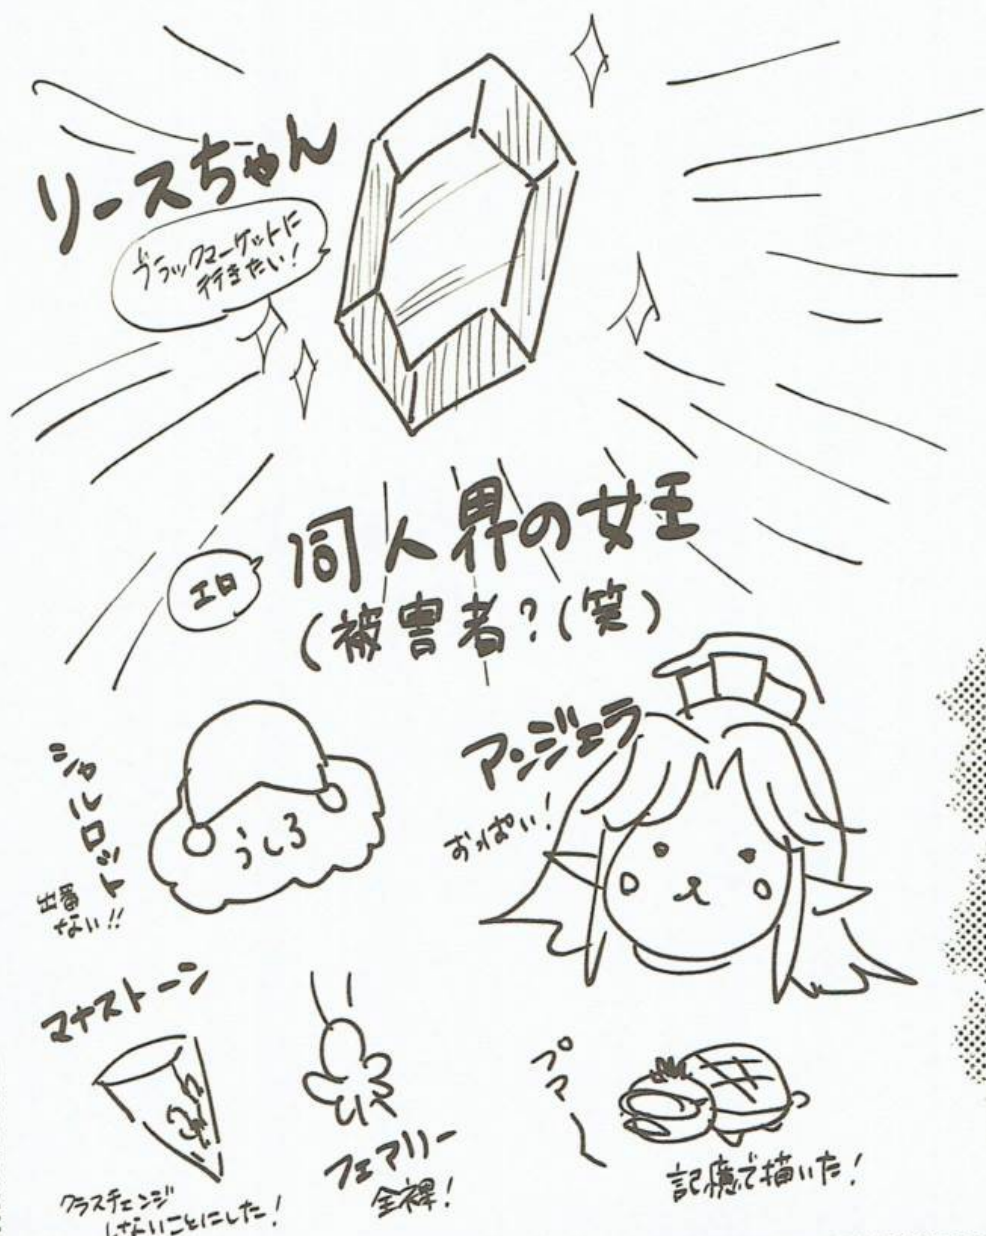 リースちゃん
ブラックマーケットに
行きたい!
エロ
同人界の女王
(被害者?(笑)
シャルロット
出番
ない!!
うしろ
アンジェラ
おっぱい!
マナストーン
クラスチェンジ
しないことにした!
フェアリー
全裸!
プマー
記憶で描いた!